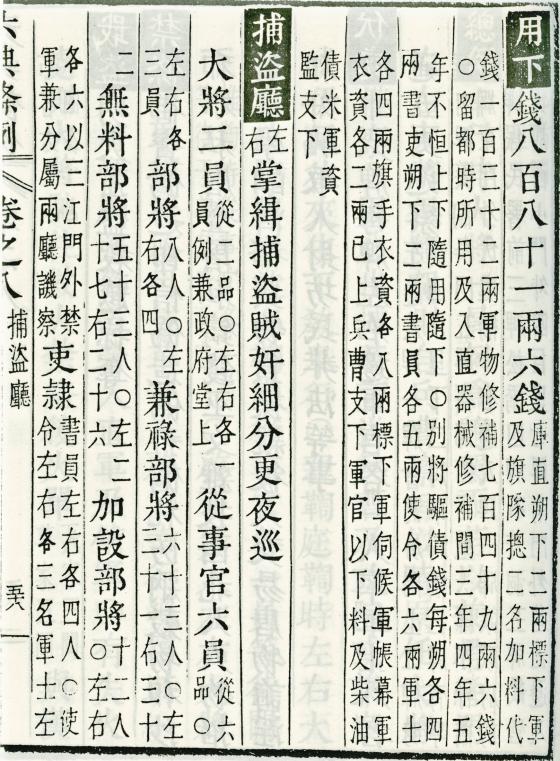 用下錢八百八十一兩六錢庫直朔下二兩標下軍及旗隊摠二名加料代
錢一百三十二兩軍物修補七百四十九兩六錢○留都時所用及入直器械修補間三年四年五
年不恒上下隨用隨下○別將驅債錢每朔各四兩書吏朔下二兩書員各五兩使令各六兩軍士
各四兩旗手衣資各八兩標下軍伺候軍帳幕軍衣資各二兩已上兵曹支下軍官以下料及柴油
債米軍資監支下
捕盜廳左右掌緝捕盜賊奸細分更夜巡
大將二員從二品○左右各一員例兼政府堂上從事官六員從六品○
左右各三員部將八人○左右各四兼祿部將六十三人○左三十一右三十
二無料部將五十三人○左二十七右二十六加設部將十二人○左右
各六以三江門外禁軍兼分屬兩廳譏察吏隷書員左右各四人○使令左右各三名軍士左
六典條例 卷之八 捕盜廳